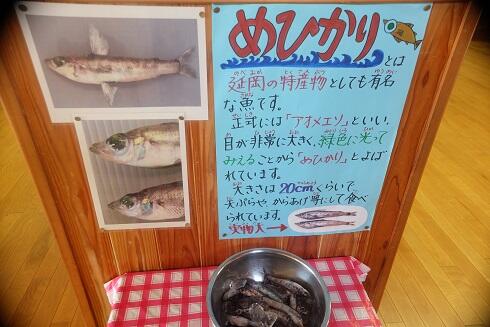 めひかりとは
延岡の特産物としても有名
な魚です。
正式には「アオメエソ」といい、
目が非常に大きく、緑色に光って
みえることから「めひかり」とよば
れています。
大きさは20cmくらいで、
天ぷらや、からあげ等にして食べ
られています。
実物大→